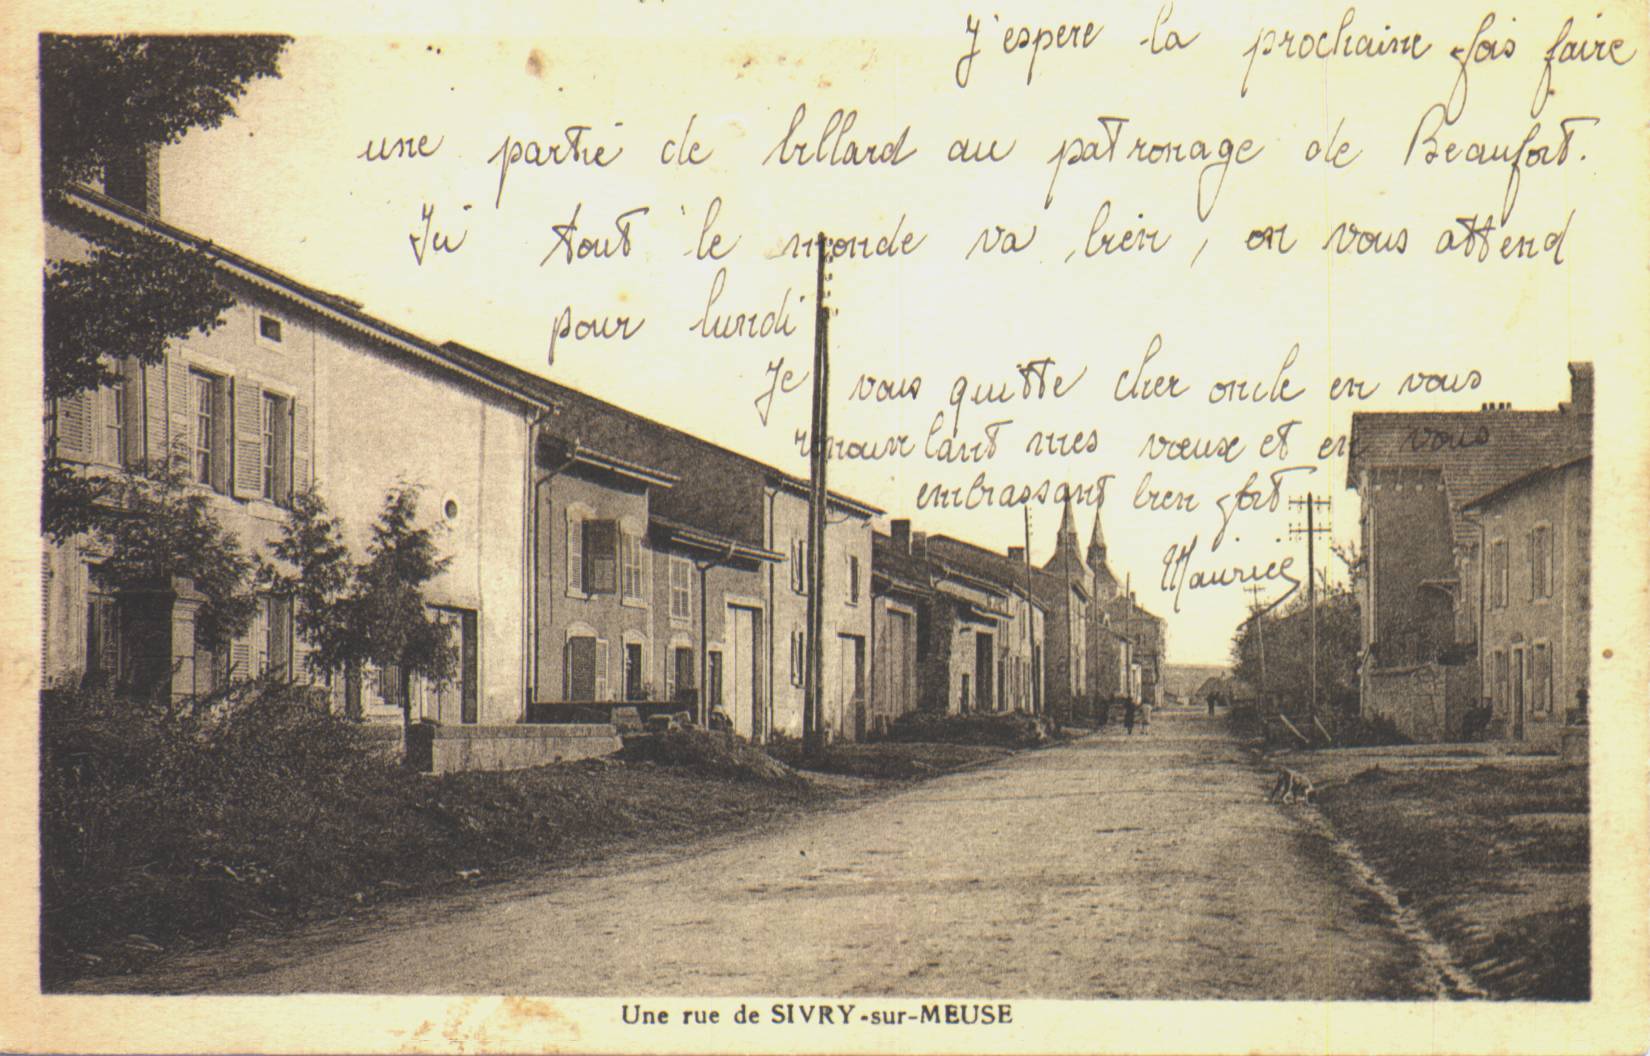 J'espere la prochaine fois faire
une partie de billard au patronage de Beaufort.
Ici tout le monde va bien, on vous attend
pour lundi
Je vous quitte cher oncle en vous
renouvelant mes vœux et en vous
embrassant bien fort
Maurice
Une rue de SIVRY-sur-MEUSE